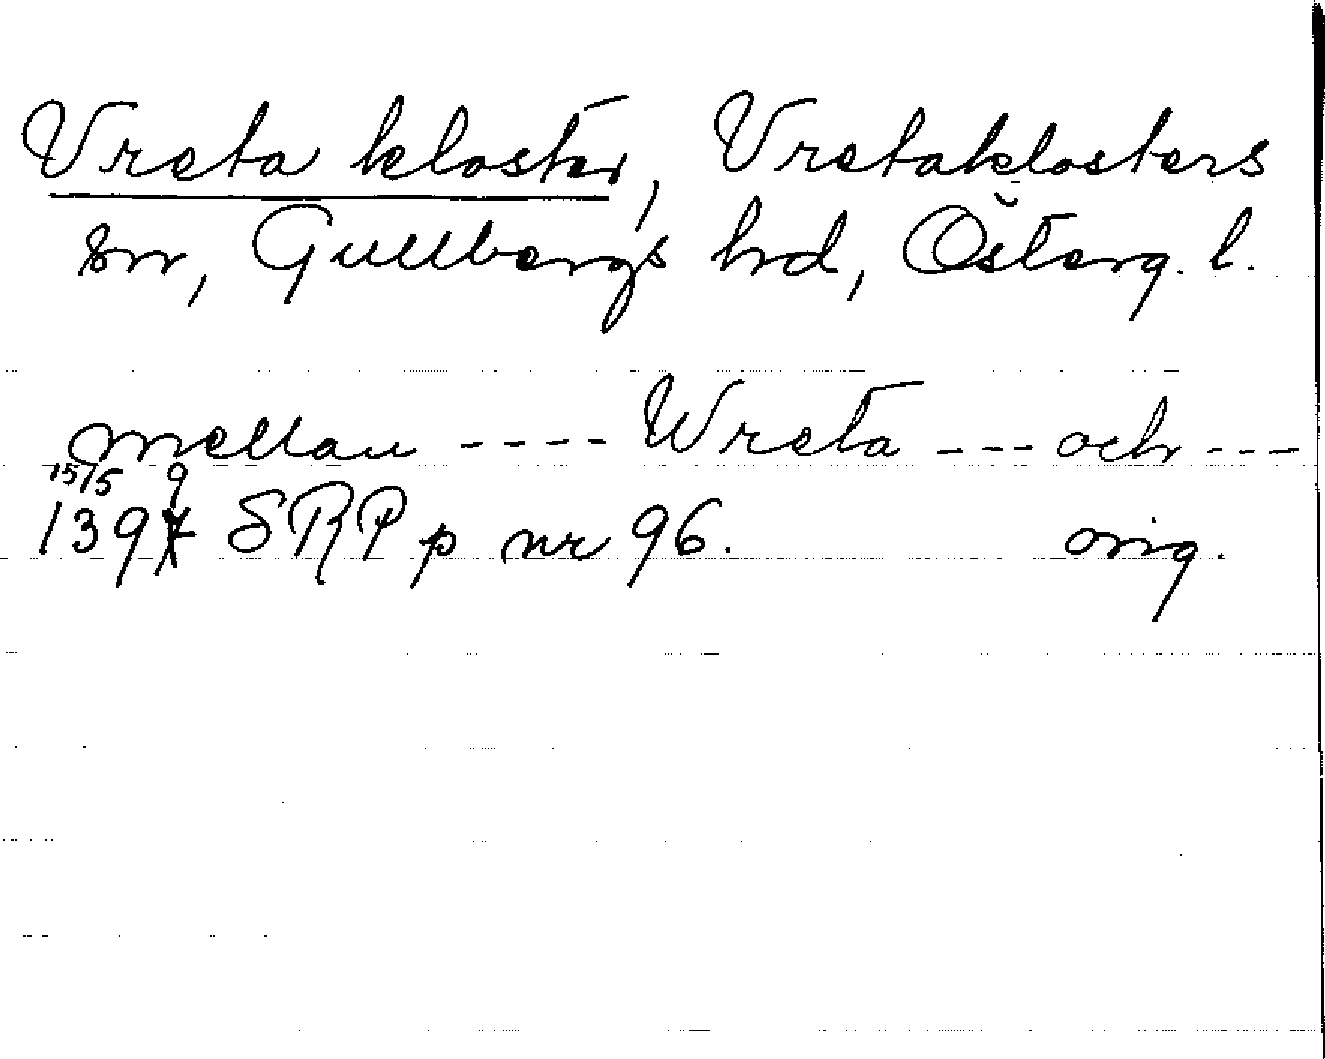 Vreta kloster, Vretaklosters
sn, Gullbergs hrd, Österg. l.
mellan ---- Wreta --- och ---
15/5 9
1397 SRP p nr 96. orig.